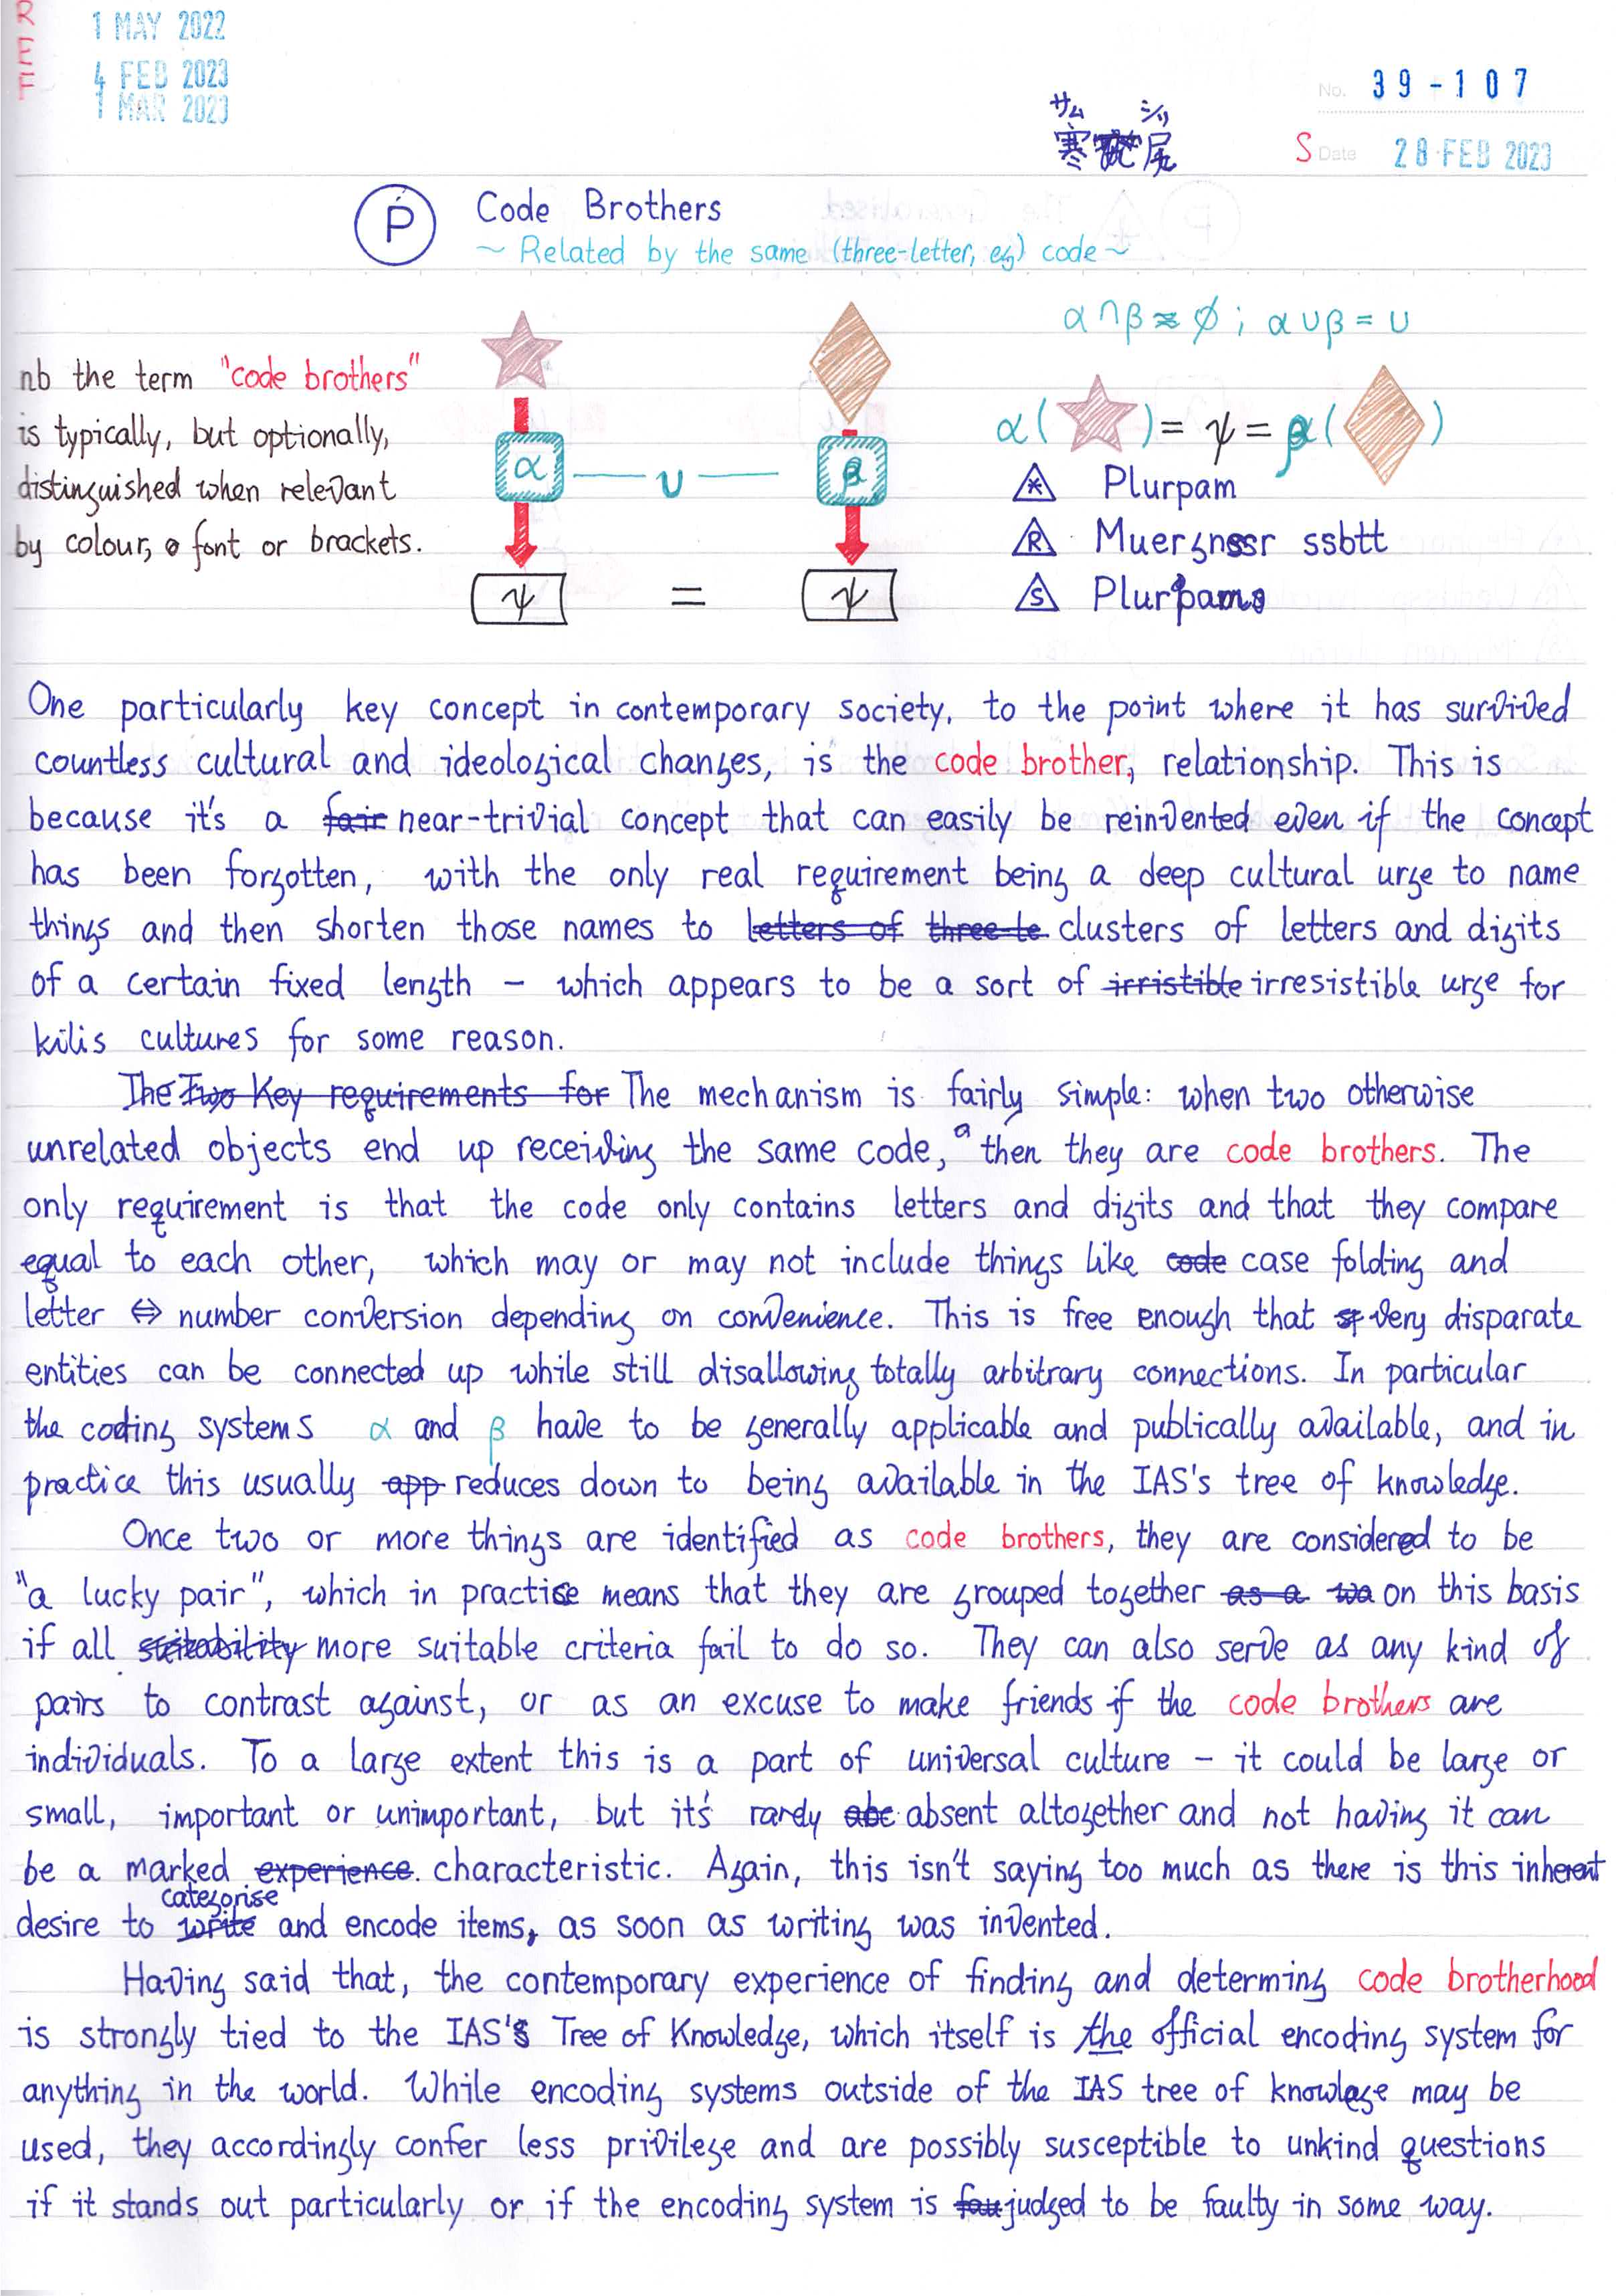 REF
1 MAY 2022
4 FEB 2023
1 MAR 2023
No. 39-107
サム シリ
寒 尻
S Date 28 FEB 2023
Ṗ Code Brothers
~ Related by the same (three-letter, eg) code ~
α∩β≈∅; α∪β=υ
nb the term "code brothers"
is typically, but optionally,
distinguished when relevant
by colour, font or brackets.
α — υ — β
ψ = ψ
α(★) = ψ = β(◆)
* Plurpam
R Muergnssr ssbtt
S Plurpam
One particularly key concept in contemporary society, to the point where it has survived
countless cultural and ideological changes, is the code brother, relationship. This is
because it's a fair near-trivial concept that can easily be reinvented even if the concept
has been forgotten, with the only real requirement being a deep cultural urge to name
things and then shorten those names to letters of three-le clusters of letters and digits
of a certain fixed length – which appears to be a sort of irristible irresistible urge for
kilis cultures for some reason.
The Two Key requirements for The mechanism is fairly simple: when two otherwise
unrelated objects end up receiving the same code, a then they are code brothers. The
only requirement is that the code only contains letters and digits and that they compare
equal to each other, which may or may not include things like code case folding and
letter ⇔ number conversion depending on convenience. This is free enough that very disparate
entities can be connected up while still disallowing totally arbitrary connections. In particular
the coding systems α and β have to be generally applicable and publically available, and in
practice this usually app reduces down to being available in the IAS's tree of knowledge.
Once two or more things are identified as code brothers, they are considered to be
"a lucky pair", which in practise means that they are grouped together as a wa on this basis
if all suitability more suitable criteria fail to do so. They can also serve as any kind of
pairs to contrast against, or as an excuse to make friends if the code brothers are
individuals. To a large extent this is a part of universal culture – it could be large or
small, important or unimportant, but it's rarely abc absent altogether and not having it can
be a marked experience characteristic. Again, this isn't saying too much as there is this inherent
desire to write categorise and encode items, as soon as writing was invented.
Having said that, the contemporary experience of finding and determing code brotherhood
is strongly tied to the IAS's Tree of Knowledge, which itself is the official encoding system for
anything in the world. While encoding systems outside of the IAS tree of knowlege may be
used, they accordingly confer less privilege and are possibly susceptible to unkind questions
if it stands out particularly or if the encoding system is fau judged to be faulty in some way.